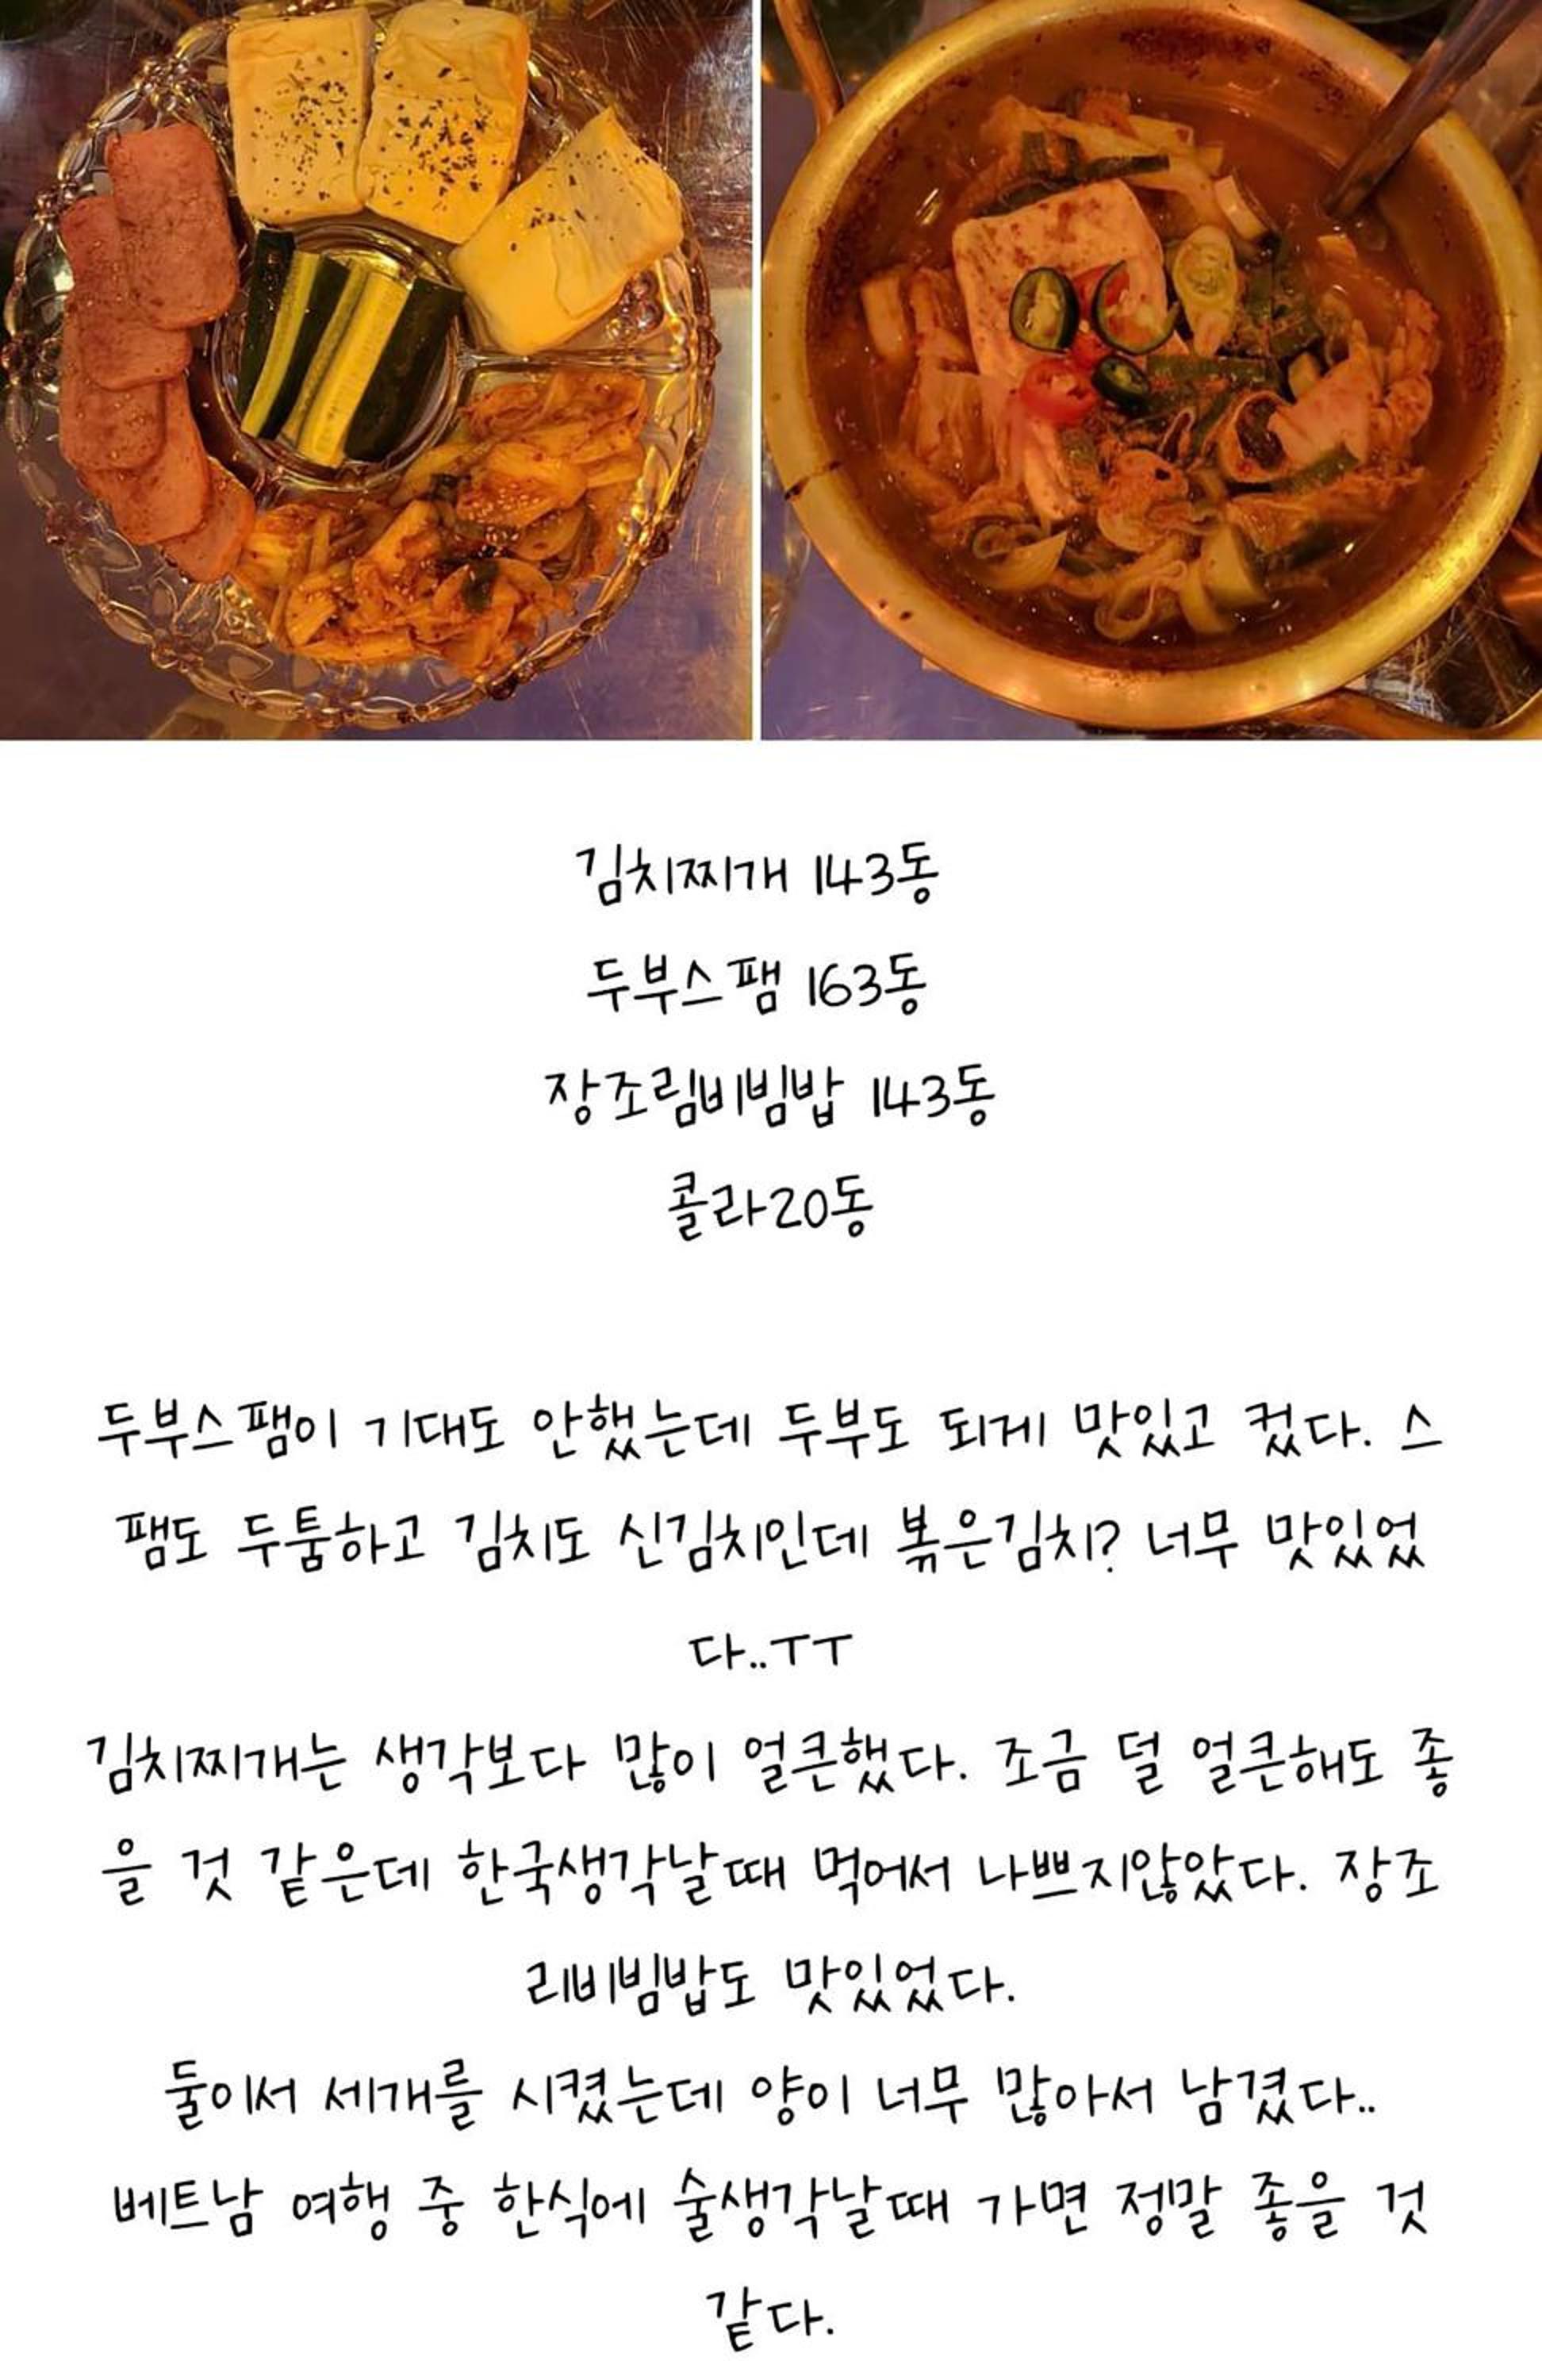 김치찌개 143동
두부스팸 163동
장조림비빔밥 143동
콜라20동
두부스팸이 기대도 안했는데 두부도 되게 맛있고 컸다. 스
팸도 두툼하고 김치도 신김치인데 볶은김치? 너무 맛있었
다..ㅜㅜ
김치찌개는 생각보다 많이 얼큰했다. 조금 덜 얼큰해도 좋
을 것 같은데 한국생각날때 먹어서 나쁘지않았다. 장조
리비빔밥도 맛있었다.
둘이서 세개를 시켰는데 양이 너무 많아서 남겼다..
베트남 여행 중 한식에 술생각날때 가면 정말 좋을 것
같다.